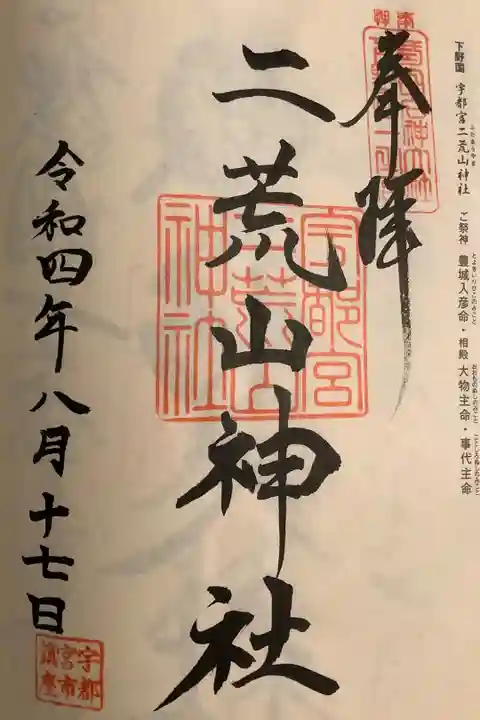 下野國 宇都宮二荒山神社 ご祭神 豊城入彦命・相殿 大物主命・事代主命
奉拝
二荒山神社
宇都宮
二荒山
神社
令和四年八月十七日
宇都
宮市